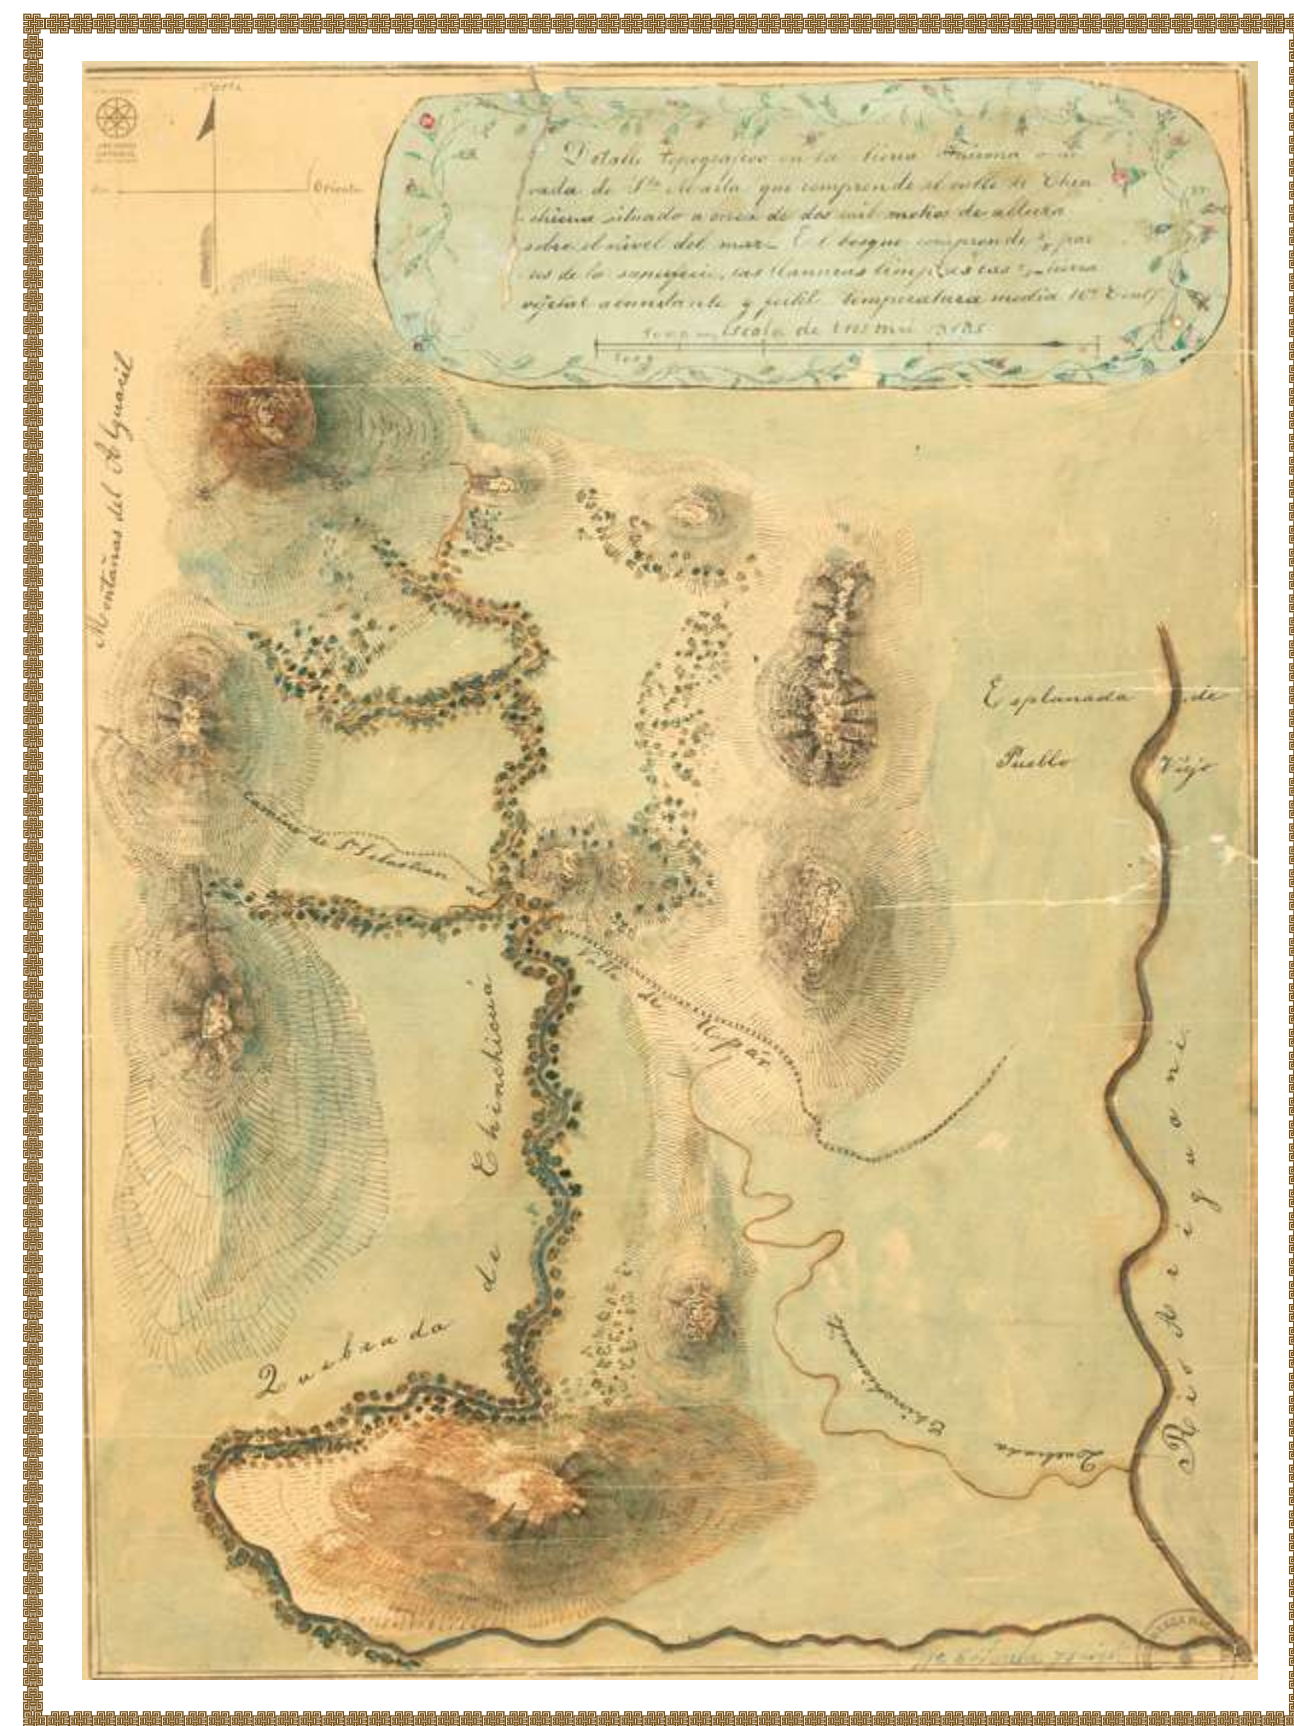 Norte
Oriente
Detalle topografico en la Sierra Nevada
vada de Sta Marta que comprende el valle de Chin
chicua situado a cerca de dos mil metros de altura
sobre el nivel del mar. El bosque comprende par
tes de la superficie, las llanuras limpias
vejetal abundante y fertil temperatura media 16º Centº
Escala de
Montañas del Alguacil
Esplanada de
Pueblo Viejo
Camino de Sn Sebastian al
Valle de Upar
Quebrada de Chinchicuá
Quebrada Chinchicua
Rio Ariguani